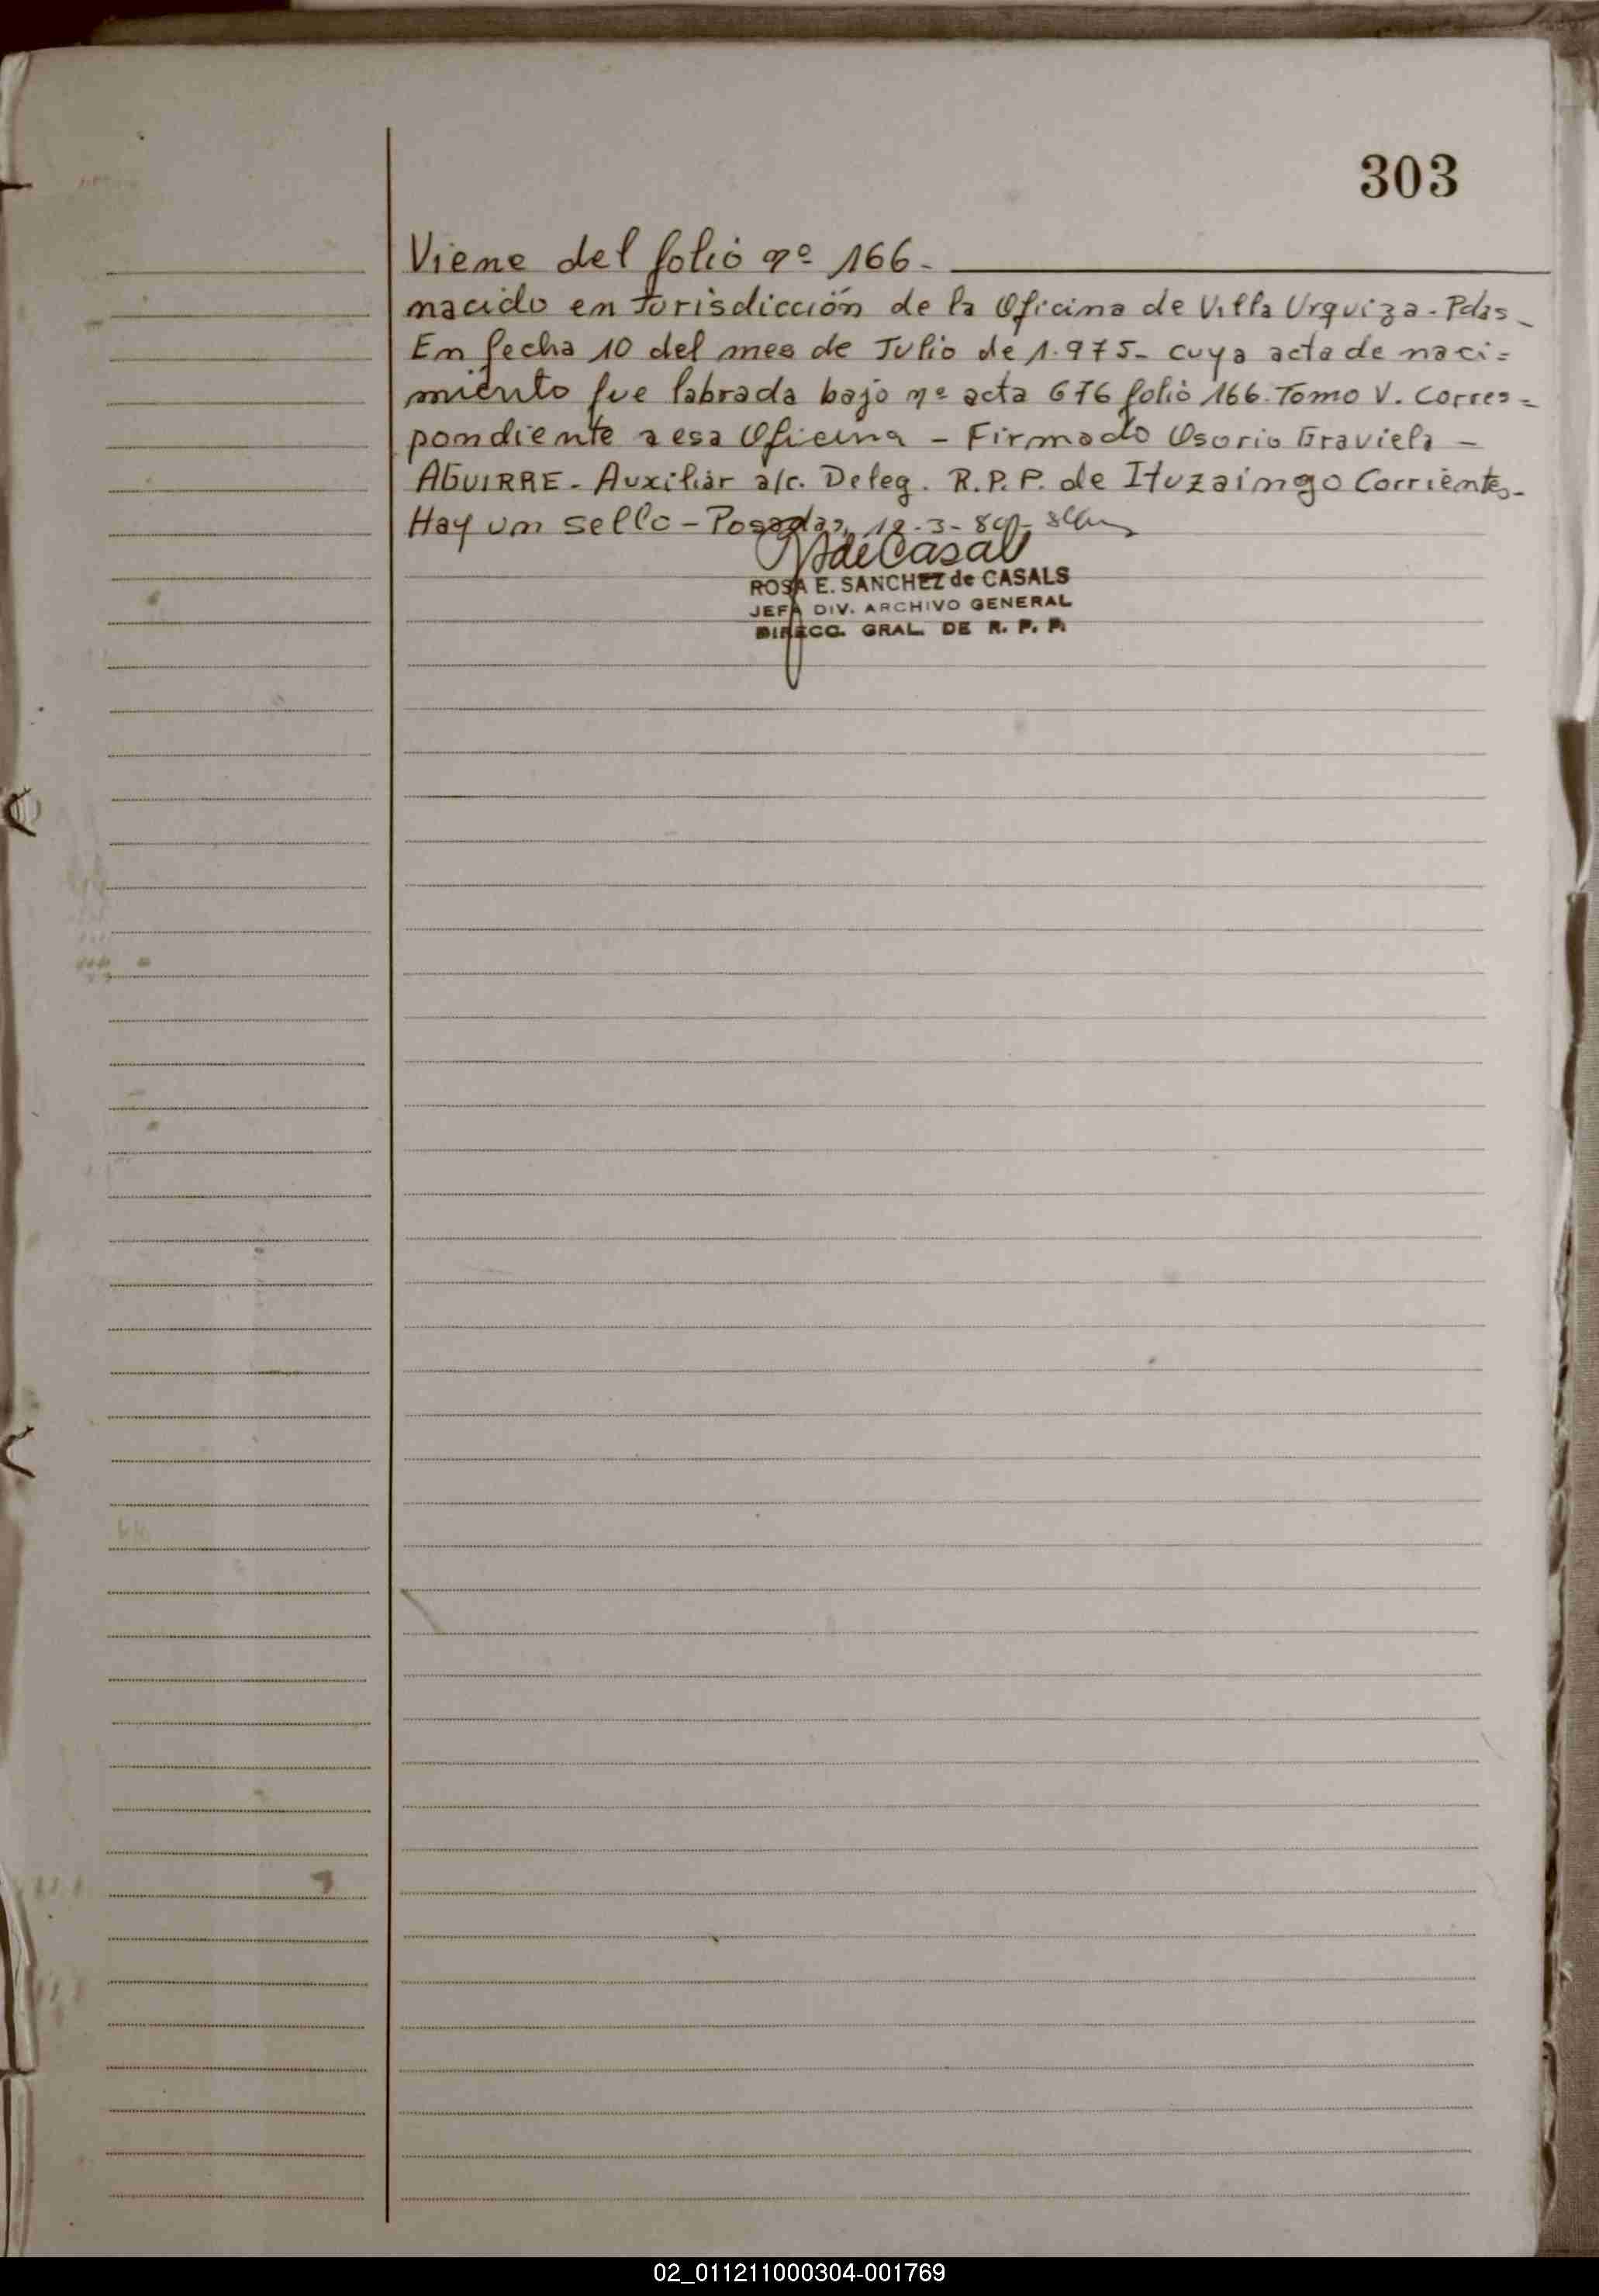 303
Viene del folio nº 166.
nacido en Jurisdicción de la Oficina de Villa Urquiza - Pdas -
En fecha 10 del mes de Julio de 1.975 - cuya acta de naci=
miento fue labrada bajo nº acta 676 folio 166. Tomo V. Corres=
pondiente a esa Oficina - Firmado Osorio Graviela -
AGUIRRE - Auxiliar a/c. Deleg. R.P.P. de Ituzaingo Corrientes -
Hay un sello - Posadas,
de Casals
ROSA E. SANCHEZ de CASALS
JEFA DIV. ARCHIVO GENERAL
DIRECC. GRAL. DE R. P. P.
02_011211000304-001769